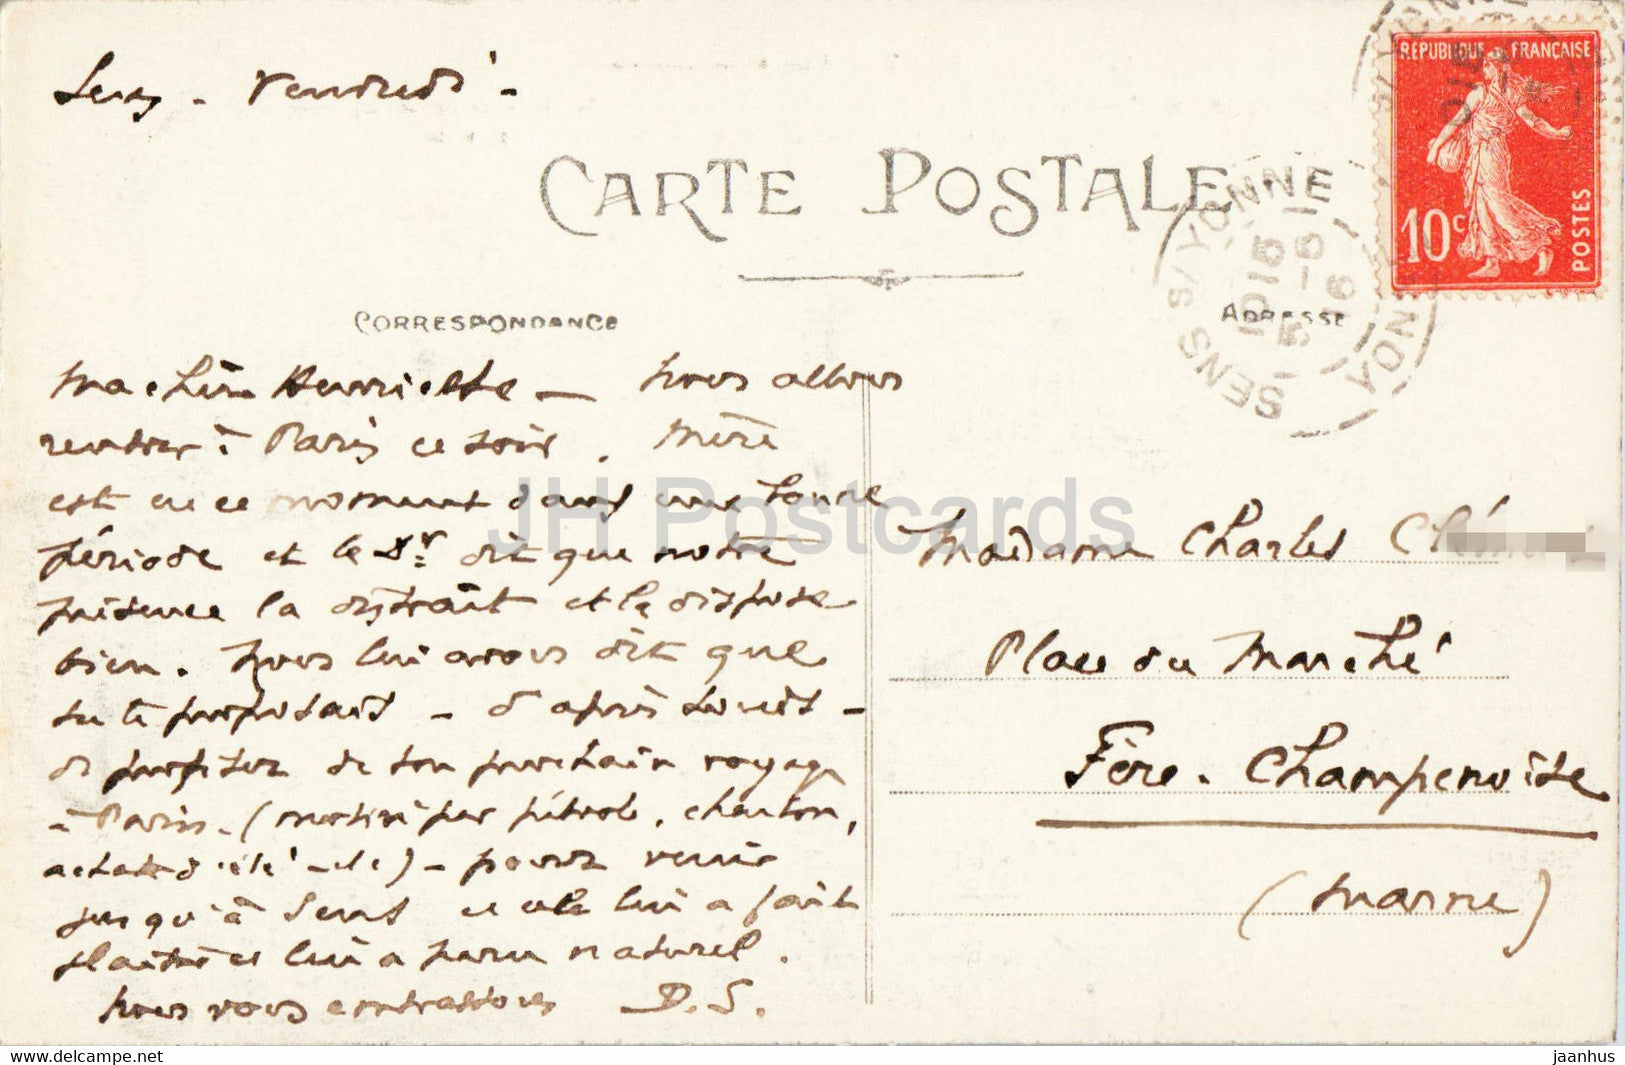 Sens - Vendredi -
CARTE POSTALE
RÉPUBLIQUE FRANÇAISE
10c
POSTES
SENS S/YONNE
YONNE
CORRESPONDANCE
ADRESSE
Ma chère Henriette - Nous allons
rentrer à Paris ce soir. Mère
est en ce moment dans une bonne
période et le Dr dit que notre
présence la distrait et la dispose
bien. Nous lui avons dit que
tu te proposais - d'après Louis -
de profiter de ton prochain voyage
à Paris - (motivé par pétrole, charbon,
achats d'été - etc) - pour venir
jusqu'à Sens et cela lui a fait
plaisir et lui a paru naturel.
Nous vous embrassons D.S.
Madame Charles
Place du Marché
Fère-Champenoise
(Marne)
JH Postcards
www.delcampe.net
jaanhus